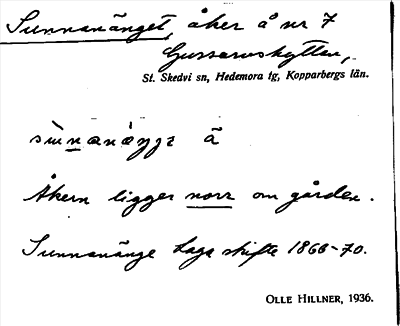 Sunnanänget, åker å nr 7
Gussarvshyttan,
St. Skedvi sn, Hedemora tg, Kopparbergs län.
Åkern ligger norr om gården.
Sunnanänge Laga skifte 1866-70.
OLLE HILLNER, 1936.